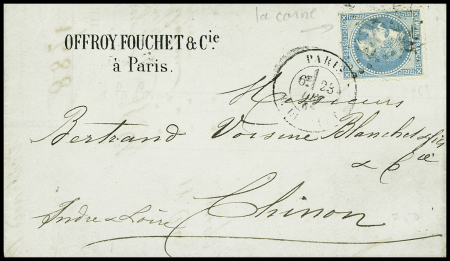 la corne
OFFROY FOUCHET & Cie
à Paris.
PARIS
6E 23
Messieurs
Bertrand Voisine Blanchet & fils
& Cie
Indre & Loire
Chinon